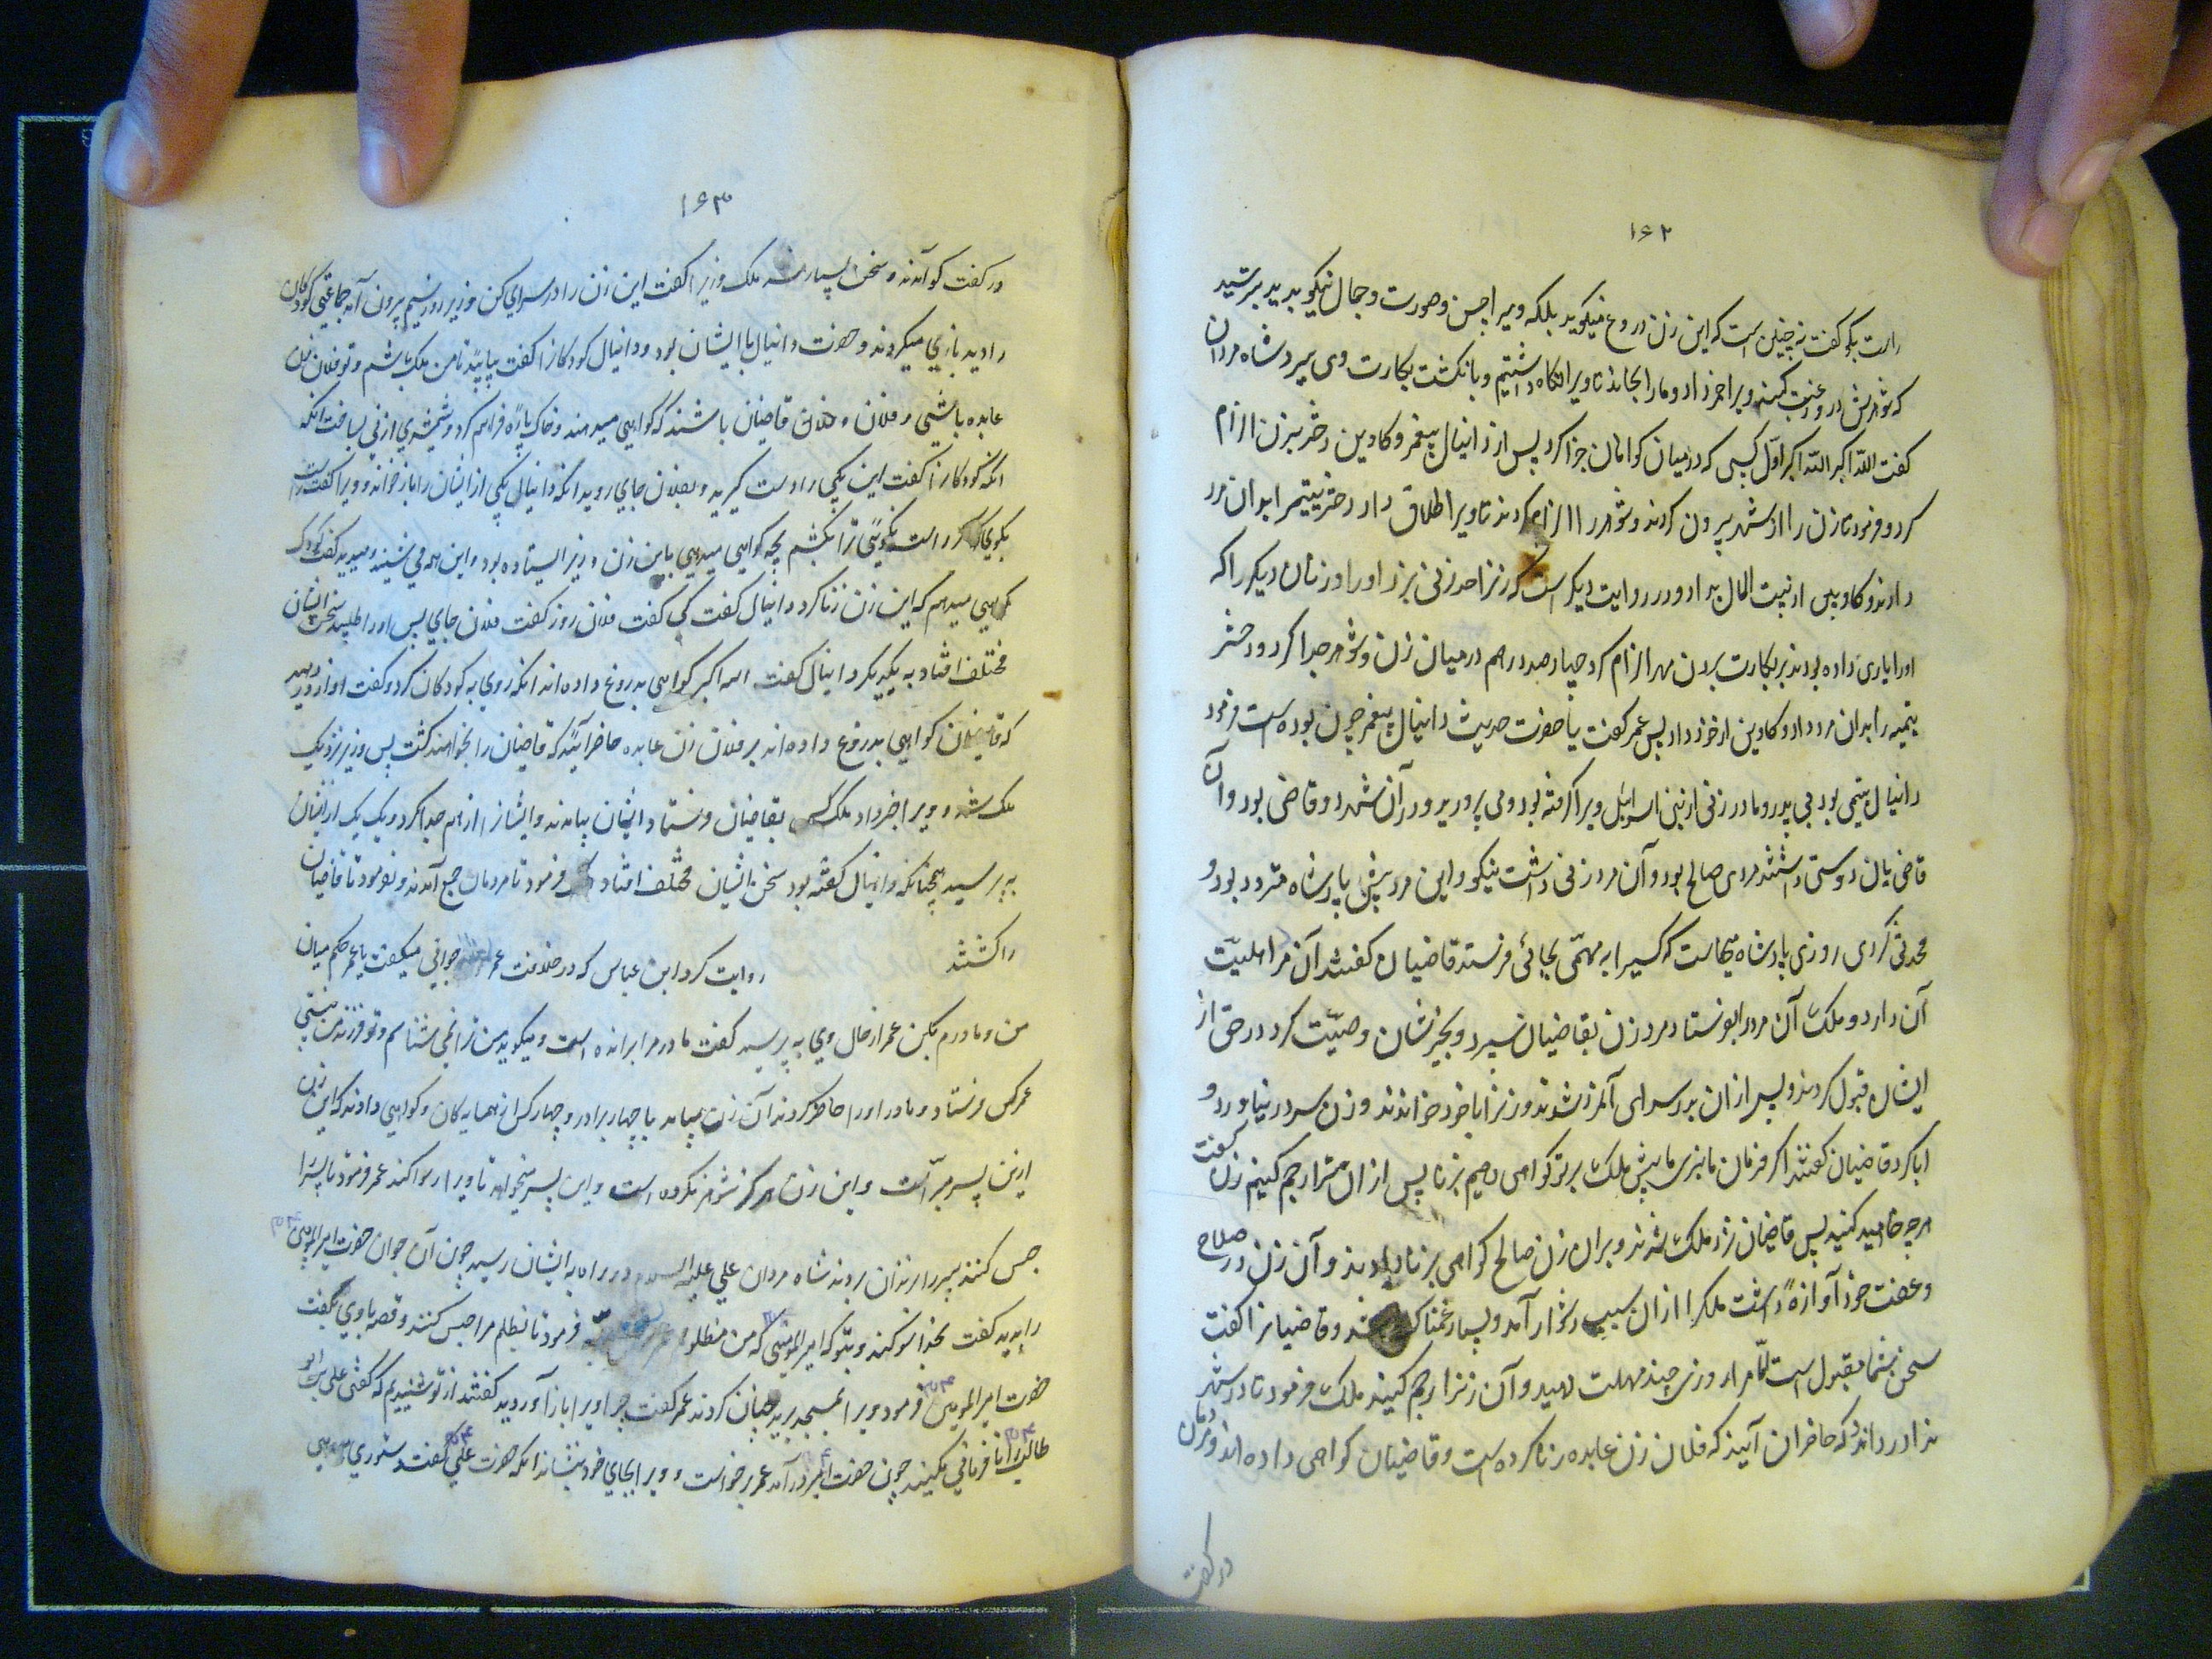 ۱۶۲
راست بگو گفت نه چنین است که این زن دروغ میگوید بلکه ویرا حسن و صورت و جمال نیکو بدید بترسید
که شوهرش درو رغبت کند ویرا خمر داد و ما را بخواند تا ویرا نگاه داشتیم و بانگشت بکارت وی ببرد شاه مردان
گفت الله اکبر الله اکبر اول کسی که در میان گواهان جدا کرد پس از دانیال پیغمبر و کاوین دختر بزن الزام
کرد و فرمود تا زن را از شهر بیرون کردند و شوهر را الزام کردند تا ویرا طلاق داد و دختر یتیم را بدان مرد
دادند و کاوین از بیت المال بداد و در روایت دیگر است که زنرا حد زنی بزد او را و زنان دیگر را که
او را یاری داده بودند بر بکارت بردن مهر الزام کرد چهار صد درهم در میان زن و شوهر جدا کرد و دختر
یتیمه را بدان مرد داد و کاوین از خود داد پس عمر گفت یا حضرت حدیث دانیال پیغمبر چون بوده است فرمود
دانیال یتیمی بود بی پدر و مادر زنی از بنی اسرائیل ویرا گرفته بود و می پرورید و در آن شهر دو قاضی بود و آن
قاضیان دوستی داشتند مردی صالح بود و آن مرد زنی داشت نیکو و این مرد پیش پادشاه متردد بود و
محدثی کردی روزی پادشاه میخاست که کسیرا به مهمی بجائی فرستد قاضیان گفتند آن مرد اهلیت
آن دارد و ملک آن مرد را بفرستاد مرد زن بقاضیان سپرد و بخیر شان وصیت کرد در حق از
ایشان قبول کردند و پس از ان بدر سرای آمد شد نمودند و زنرا با خود خواندند و زن سر در نیاورد و
ابا کرد قاضیان گفتند اگر فرمان ما نبری ما پیش ملک بر تو گواهی دهیم بزنا پس از ان ترا رجم کنیم زن گفت
هر چه خاهید کنید پس قاضیان نزد ملک شدند و بران زن صالح گواهی بزنا دادند و آن زن در صلاح
و عفت خود آوازه داشت ملکرا از ان سبب دشوار آمد و بسیار غمناک شد و قاضیانرا گفت
سخن شما مقبول است اما مرا روزی چند مهلت دهید و آن زنرا رجم کنید ملک فرمود تا در شهر
ندا در دادند که حاضران آیید که فلان زن عابده زنا کرده است و قاضیان گواهی داده اند و مردمان
در گفت
۱۶۳
در گفت گو آمدند و سخن بسیار شد ملک وزیرا گفت این زن را در سرای کن وزیر روز سیم بیرون آمد جماعتی کودکان
را دید بازی میکردند و حضرت دانیال با ایشان بود و دانیال کودکانرا گفت بیایید تا من ملک باشم و تو فلان زن
عابده باشی و فلان و فلان قاضیان باشند که گواهی میدهند و خاک پاره فراهم کرد و شمشیری از نی بساخت انگه
انگه کودکانرا گفت این یکی را دست گیرید و بفلان جای روید انگه دانیال یکی از ایشان را باز خواند و ویرا گفت راست
بگوی که اگر راست نگویی ترا بکشم بچه گواهی میدهی باین زن وزیر ایستاده بود و این همه می شنید و میدید گفت کودک
گواهی میدهم که این زن زنا کرد دانیال گفت کی گفت فلان روز گفت فلان جای پس او را طلبید سخن ایشان
مختلف افتاد به یکدیگر دانیال گفت الله اکبر گواهی بدروغ داده اند انگه روی به کودکان کرد و گفت آواز در دهید
که قاضیان گواهی بدروغ داده اند بر فلان زن عابده حاضر آیید که قاضیان را بخواهند کشت پس وزیر نزدیک
ملک شد و ویرا خبر داد ملک کس بقاضیان فرستاد ایشان بیامدند و ایشانرا از هم جدا کرد و یک یک از ایشان
به پرسید همچنانکه دانیال گفته بود سخن ایشان مختلف افتاد ملک فرمود تا مردمان جمع آمدند و بفرمود تا قاضیان
را کشتند روایت کرد ابن عباس که در خلافت عمر جوانی میگفت یا عمر حکم میان
من و مادرم بکن عمر از حال وی به پرسید گفت مادر مرا برانده است و میگوید من ترا نمی شناسم و تو فرزند من نیستی
عمر کس فرستاد و مادر او را حاضر کردند آن زن بیامد با چهار برادر و چهار کس از همسایه کان و گواهی دادند که این زن
ازین پسر مبراست و این زن هرگز شوهر نکرده است و این پسر میخواهد تا ویرا رسوا کند عمر فرمود تا پسر را
حبس کنند پسر را زندان بردند شاه مردان علی علیه السلام در راه به ایشان رسید چون آن جوان حضرت امیر المومنین
را بدید گفت بخدا سوگند و بتو که امیر المومنینی که من مظلوم عمر فرمود تا بظلم مرا حبس کنند و قصه با وی بگفت
حضرت امیر المومنین فرمود ویرا بمسجد برید چنان کردند عمر گفت چرا ویرا باز آوردید گفتند از تو شنیدیم که گفتی علی بن ابو
طالب را نا فرمانی نکنید چون حضرت امیر در آمد عمر برخواست و ویرا بجای خود بنشاند انگه حضرت علی گفت دستوری میدهی